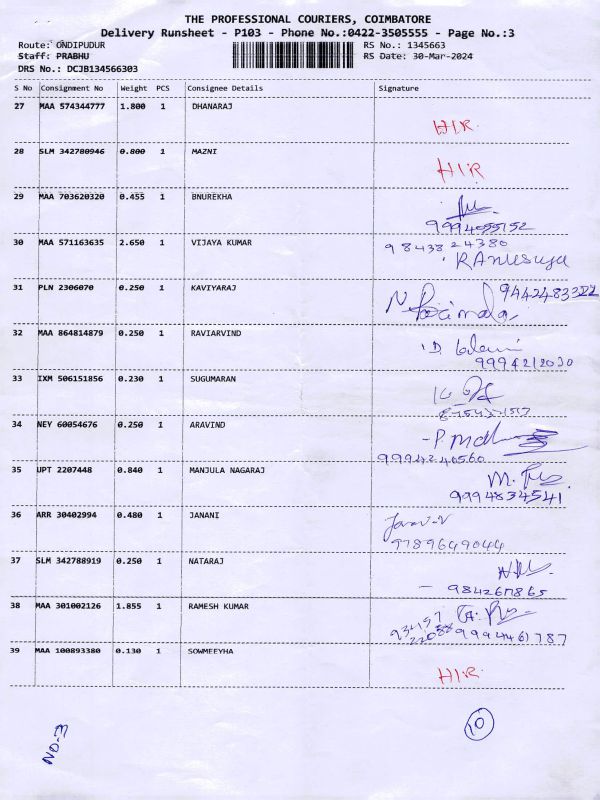 THE PROFESSIONAL COURIERS, COIMBATORE
Delivery Runsheet - P103 - Phone No.:0422-3505555 - Page No.:3
Route: ONDIPUDUR RS No.: 1345663
Staff: PRABHU RS Date: 30-Mar-2024
DRS No.: DCJB134566303
S No Consignment No Weight PCS Consignee Details Signature
27 MAA 574344777 1.800 1 DHANARAJ
HIR
28 SLM 342780946 0.800 1 MAZNI
HIR
29 MAA 703620320 0.455 1 BNUREKHA
9994055152
30 MAA 571163635 2.650 1 VIJAYA KUMAR 9843824380
RAnusuya
31 PLN 2306070 0.250 1 KAVIYARAJ 9442483322
32 MAA 864814879 0.250 1 RAVIARVIND
9994212030
33 IXM 506151856 0.230 1 SUGUMARAN
34 NEY 60054676 0.250 1 ARAVIND
9994240560
35 UPT 2207448 0.840 1 MANJULA NAGARAJ
9994834541
36 ARR 30402994 0.480 1 JANANI
9789649044
37 SLM 342788919 0.250 1 NATARAJ
38 MAA 301002126 1.855 1 RAMESH KUMAR
9994461787
39 MAA 100893380 0.130 1 SOWMEEYHA
HIR
NO-3 10